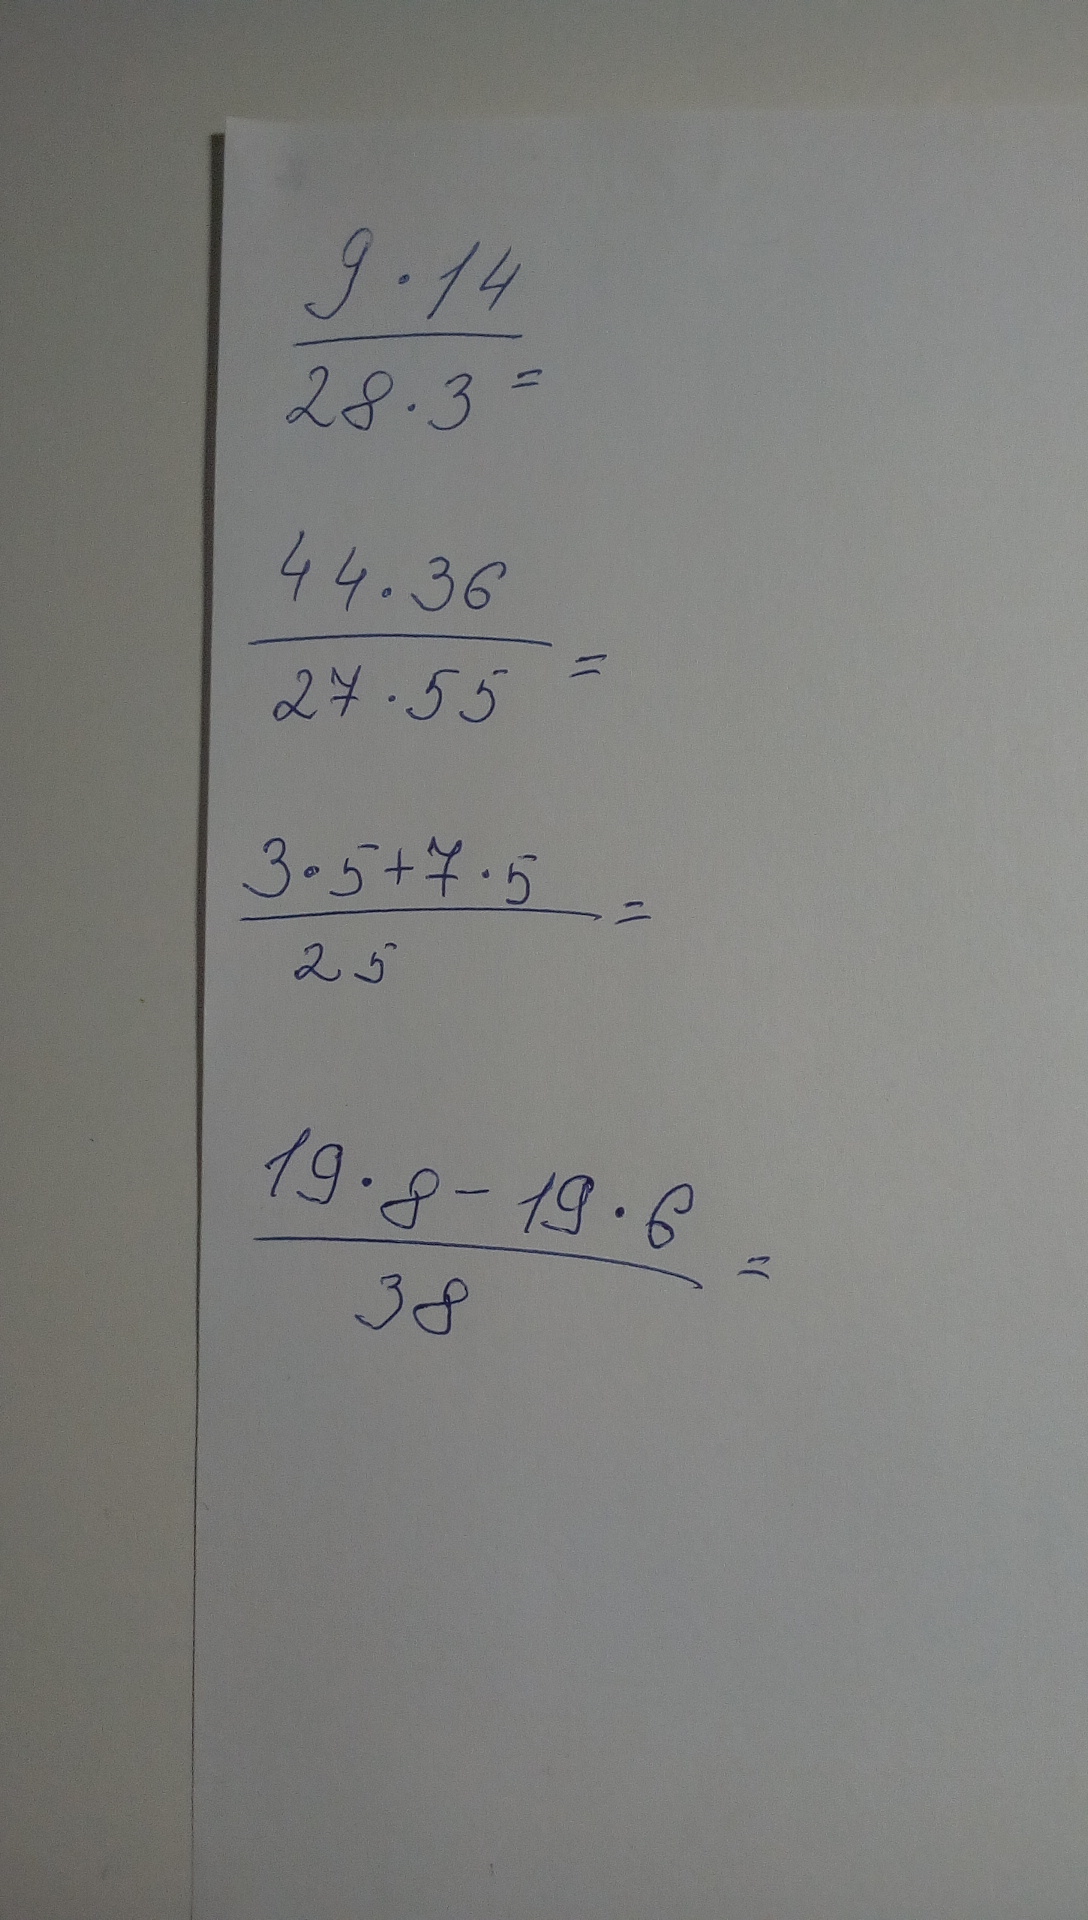 9·14
28·3 =
44·36
=
27·55
3·5+7·5
=
25
19·8-19·6
=
38